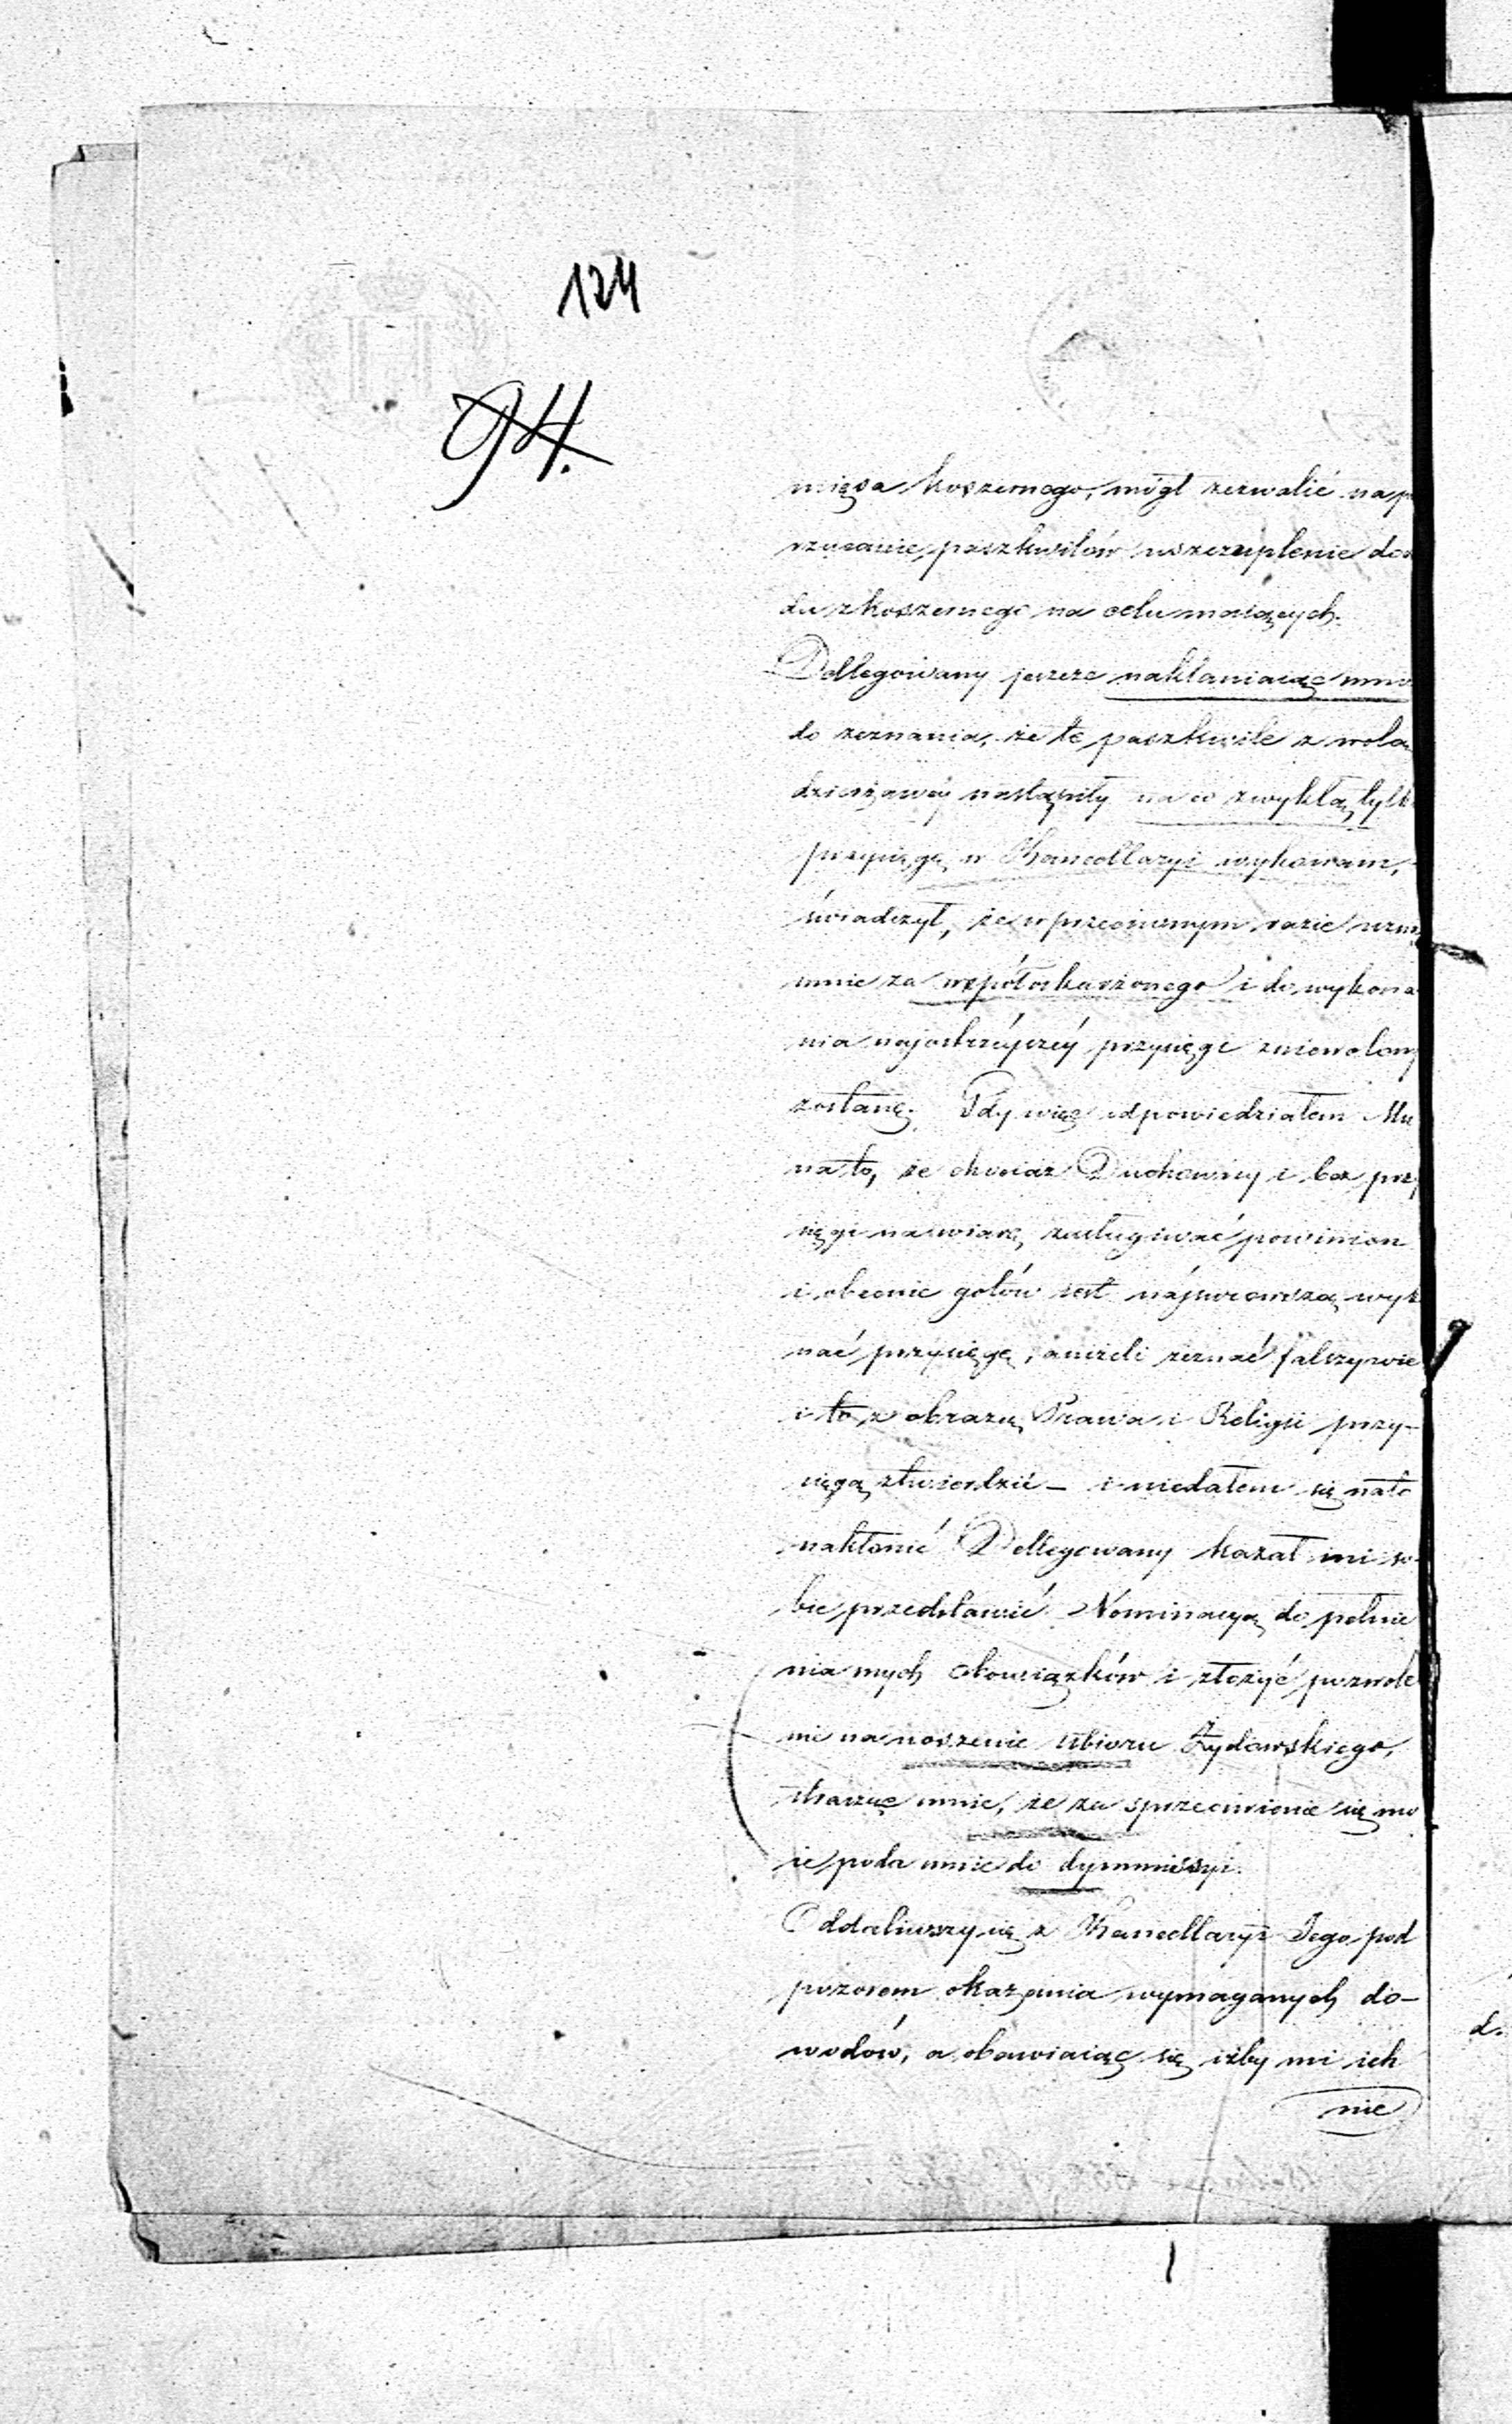 124
94.
mięsa koszernego, mógł zezwalić na p
rzucanie paszkwilów uszczuplenie do
du z koszernego na celu maiących.
Dellegowany przeze nakłaniaiąc mn
do zeznania, że te paszkwile z wol
dzierżawcy nastąpiły na co zwykłą tylk
przysięgę w Kancellaryi wykonam,
świadczył, że w przeciwnym razie uzn
mnie za współoskarżonego i do wykona
nia najostrzéyszéy przysięgi zniewolony
zostanę. Gdy więc odpowiedziałem Mu
na to, że chociaż Duchowny i bez przy
sięgi na wiarę zasługiwać powinien
i obecnie gotów iest najsurowszą wyk
nać przysięgę, aniżeli zeznać fałszywie
i to z obrazą Prawa i Religii przy-
sięgą stwierdzić – i niedałem się na to
nakłonić Dellegowany kazał mi so-
bie przedstawić Nominacyą do pełnie
nia mych obowiązków i złożyć pozwole
nie na noszenie ubioru Żydowskiego,
mnie, że za sprzeciwienie się mo
ie poda mnie do dymmissyi.
Oddaliwszy się z Kancellaryi Jego pod
pozorem okazania wymaganych do-
wodów, a obawiaiąc się iżby mi ich
nie